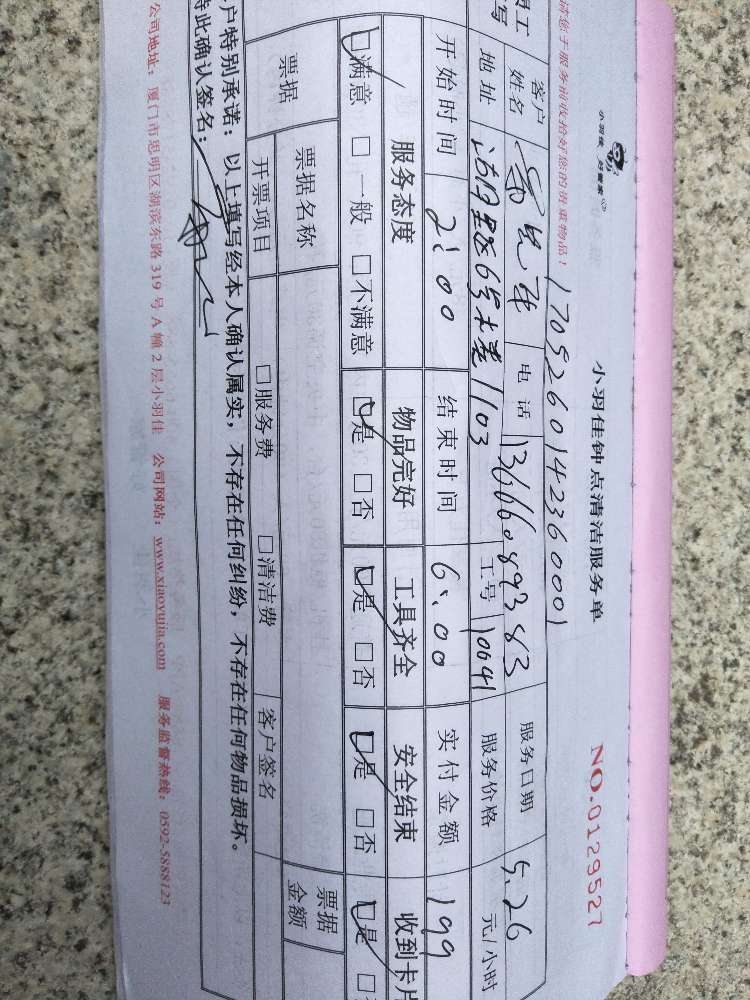 小羽佳钟点清洁服务单
NO.0129527
请您于服务前收拾好您的贵重物品！
1705260142360001
客户姓名 先生 电话 13666089383 服务日期 5.26
地址 1103 工号 10641 服务价格 元/小时
开始时间 2:00 结束时间 6:00 实付金额 199
服务态度 物品完好 工具齐全 安全结束 收到卡片
☑满意 □一般 □不满意 ☑是 □否 ☑是 □否 ☑是 □否 ☑是 □
票据 票据名称 票据金额
开票项目 □服务费 □清洁费 客户签名
户特别承诺：以上填写经本人确认属实，不存在任何纠纷，不存在任何物品损坏。
特此确认签名：
公司地址：厦门市思明区湖滨东路 319 号 A 幢 2 层小羽佳 公司网站：www.xiaoyujia.com 服务监督热线：0592-5888123